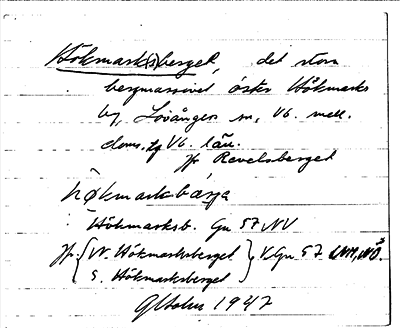 Hökmark(s)berget, det stora
bergmassivet öster Hökmarks
by, Lövånger sn, Vb. mell.
doms. tg Vb. län.
Jfr Revelsberget
hǿkmarkbærja
Hökmarksb. Gn 57, NV
Jfr {N. Hökmarksberget
S. Hökmarksberget} V. Gn 57
1947